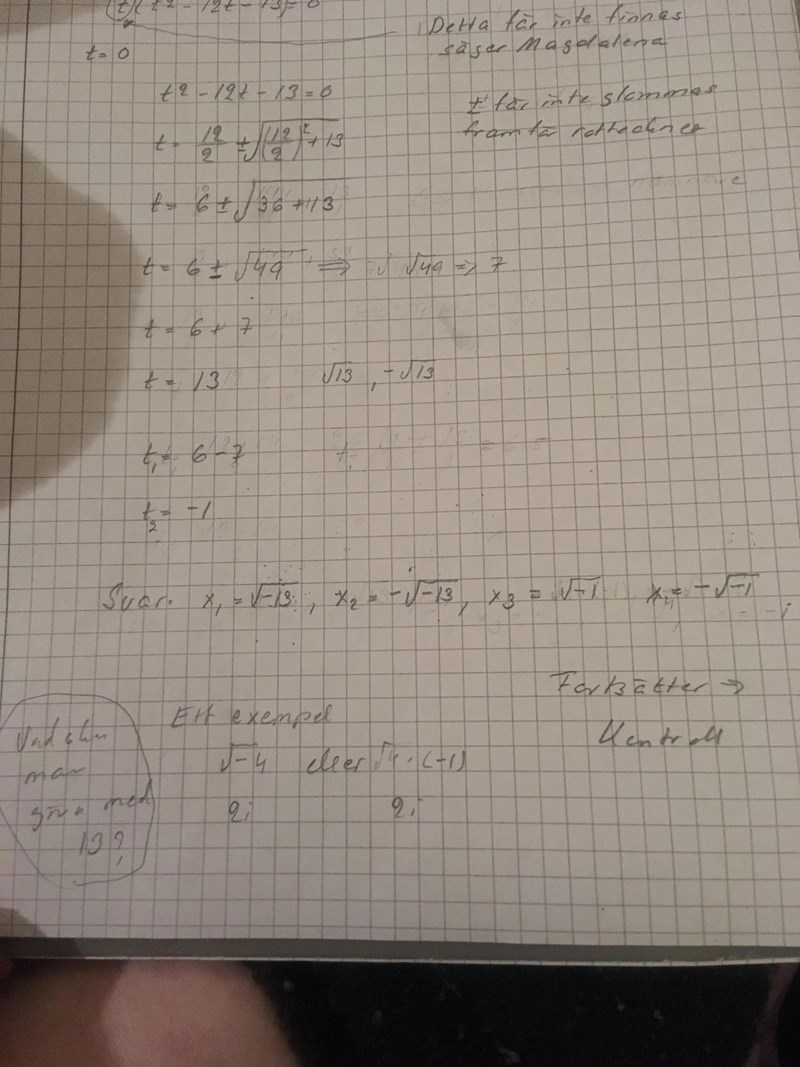 (t)(t2 - 12t - 13) = 0
Detta får inte finnas
säger Magdalena
t = 0
t2 - 12t - 13 = 0
± får inte glömmas
framför rottecknet
t = 12/2 ± √(12/2)² + 13
t = 6 ± √36 + 13
t = 6 ± √49 ⇒ √49 => 7
t = 6 + 7
t = 13 √13 , -√13
t₁ = 6 - 7
t₂ = -1
Svar. x₁ = √-13 , x₂ = -√-13 , x₃ = √-1 x₄ = -√-1
= -i
Fortsätter →
Kontroll
Ett exempel
√-4 eller √4 · (-1)
2i 2i
Vad ska
man
göra med
13?